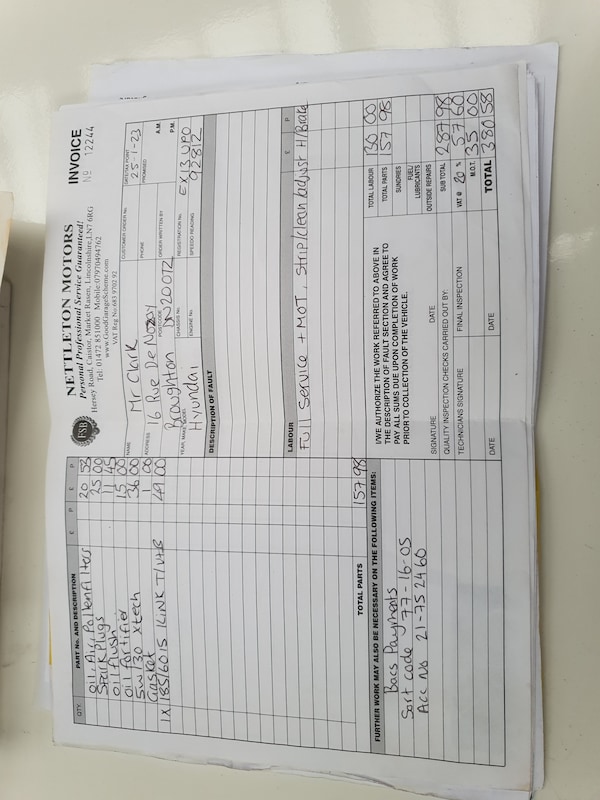 NETTLETON MOTORS
Personal Professional Service Guaranteed!
Hersey Road, Caistor, Market Rasen, Lincolnshire, LN7 6RG
Tel: 01472 851000 Mobile:07970494762
www.GoodGarageScheme.com
VAT Reg No 683 9702 92
FSB
INVOICE
No 12244
NAME Mr Clark
CUSTOMER ORDER No.
DATE/TAX POINT 25-1-23
ADDRESS 16 Rue De
PHONE
PROMISED A.M.
P.M.
POSTCODE
Broughton
ORDER WRITTEN BY
YEAR, MAKE, MODEL Hyundai
CHASSIS No.
REGISTRATION No. EX13 UPO
ENGINE No.
SPEEDO READING 92812
DESCRIPTION OF FAULT
LABOUR £ P
Full Service + MOT, Strip/clean/adjust H/Brake
QTY. PART No. AND DESCRIPTION £ P £ P
Oil, Air, Pollen Filters 20 53
Spark Plugs 25 00
Oil Flush 11 45
Oil Fortifier 15 00
5w/30 Xtech 36 00
Gasket 1 00
1X 185/60 15 49 00
TOTAL PARTS 157 98
FURTHER WORK MAY ALSO BE NECESSARY ON THE FOLLOWING ITEMS:
Bacs Payments
Sort code 77-16-05
Acc No 21-752460
I/WE AUTHORIZE THE WORK REFERRED TO ABOVE IN
THE DESCRIPTION OF FAULT SECTION AND AGREE TO
PAY ALL SUMS DUE UPON COMPLETION OF WORK
PRIOR TO COLLECTION OF THE VEHICLE.
SIGNATURE DATE
QUALITY INSPECTION CHECKS CARRIED OUT BY:
TECHNICIANS SIGNATURE FINAL INSPECTION
DATE DATE
TOTAL LABOUR 130 00
TOTAL PARTS 157 98
SUNDRIES
FUEL/
LUBRICANTS
OUTSIDE REPAIRS
SUB TOTAL 287 98
VAT @ 20 % 57 60
M.O.T. 35 00
TOTAL 380 58